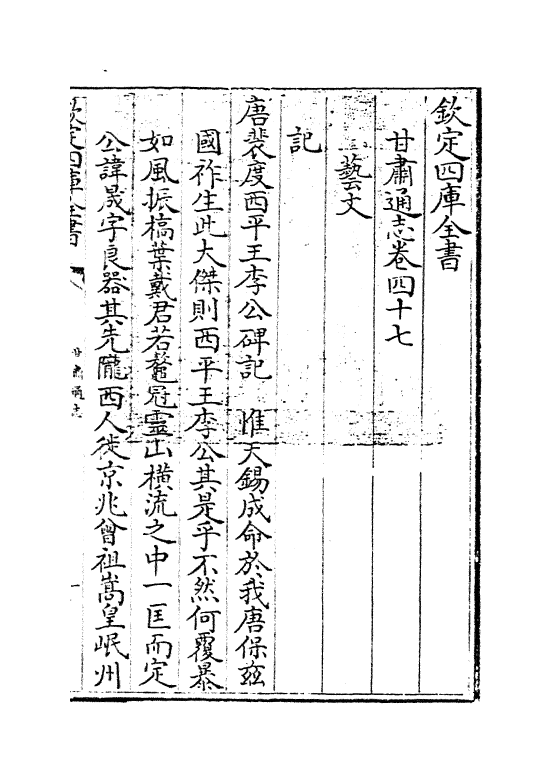 欽定四庫全書
甘肅通志卷四十七
藝文
記
唐裴度西平王李公碑記　惟天錫成命於我唐保玆
國祚生此大傑則西平王李公其是乎不然何覆暴
如風振槁葉戴君若鼇冠靈山橫流之中一匡而定
公諱晟字良器其先隴西人徙京兆曾祖嵩皇岷州
欽定四庫全書
甘肅通志
一